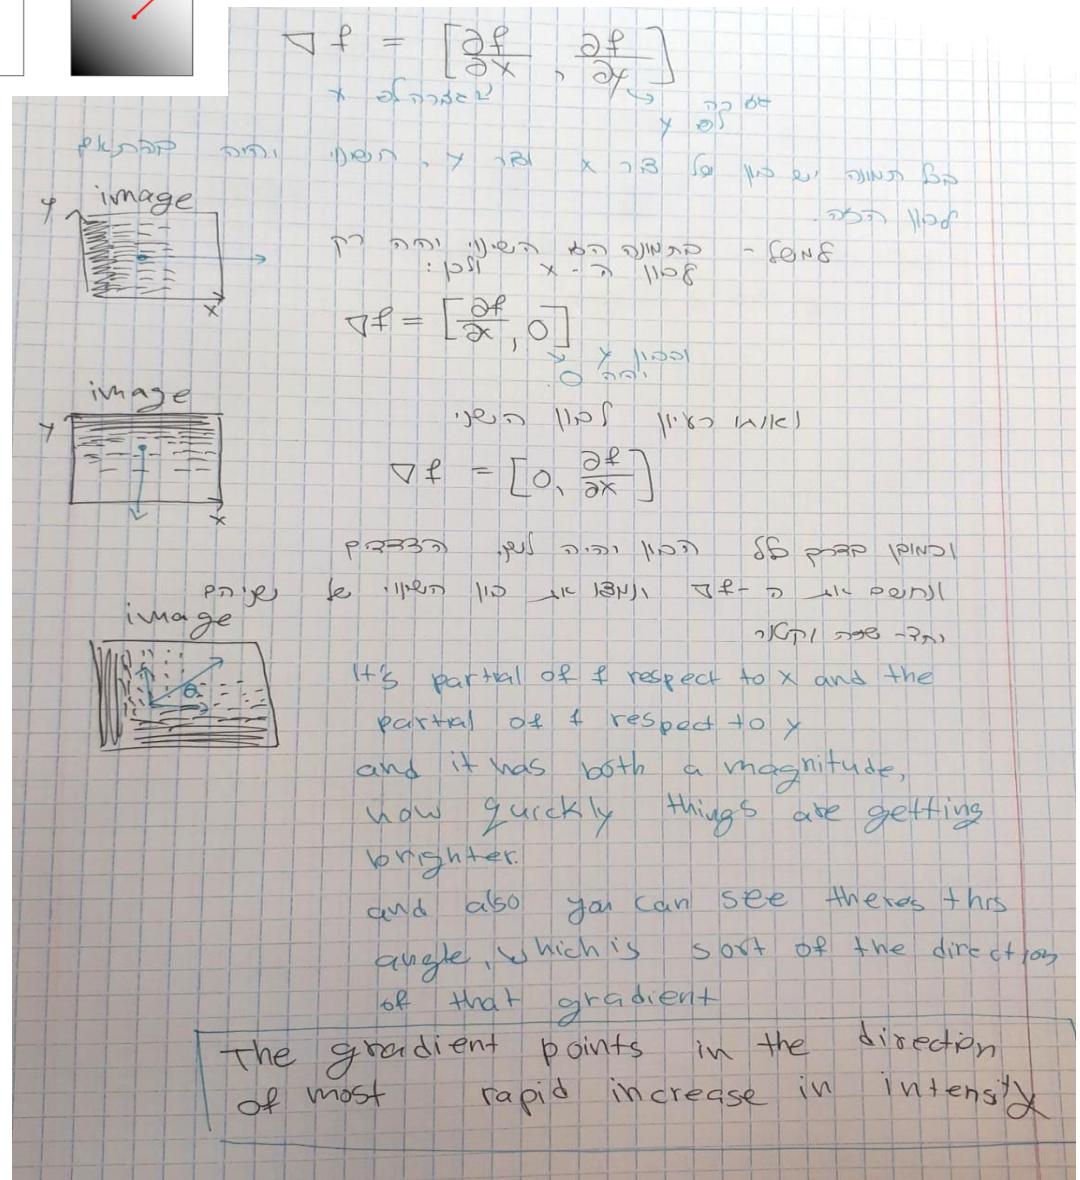 ∇f = [∂f/∂x, ∂f/∂y]
x
y
בכל תמונה יש כיוון של ציר x וציר y, השינוי יהיה בהתאם
לכיוון הזה.
y
image
x
למשל - בתמונה הזו השינוי יהיה רק
בכיוון ה-x ולכן:
∇f = [∂f/∂x, 0]
ובכיוון y
יהיה 0
image
y
x
ואותו רעיון לכיוון השני
∇f = [0, ∂f/∂x]
וכמובן בדרך כלל הכיוון יהיה לשני הצדדים
ונחשב את ה-∇f ונמצא את כיוון השינוי של שניהם
יחד-
image
θ
It's partial of f respect to x and the
partial of f respect to y
and it has both a magnitude,
how quickly things are getting
brighter.
and also you can see theres this
angle, which is sort of the direction
of that gradient
The gradient points in the direction
of most rapid increase in intensity